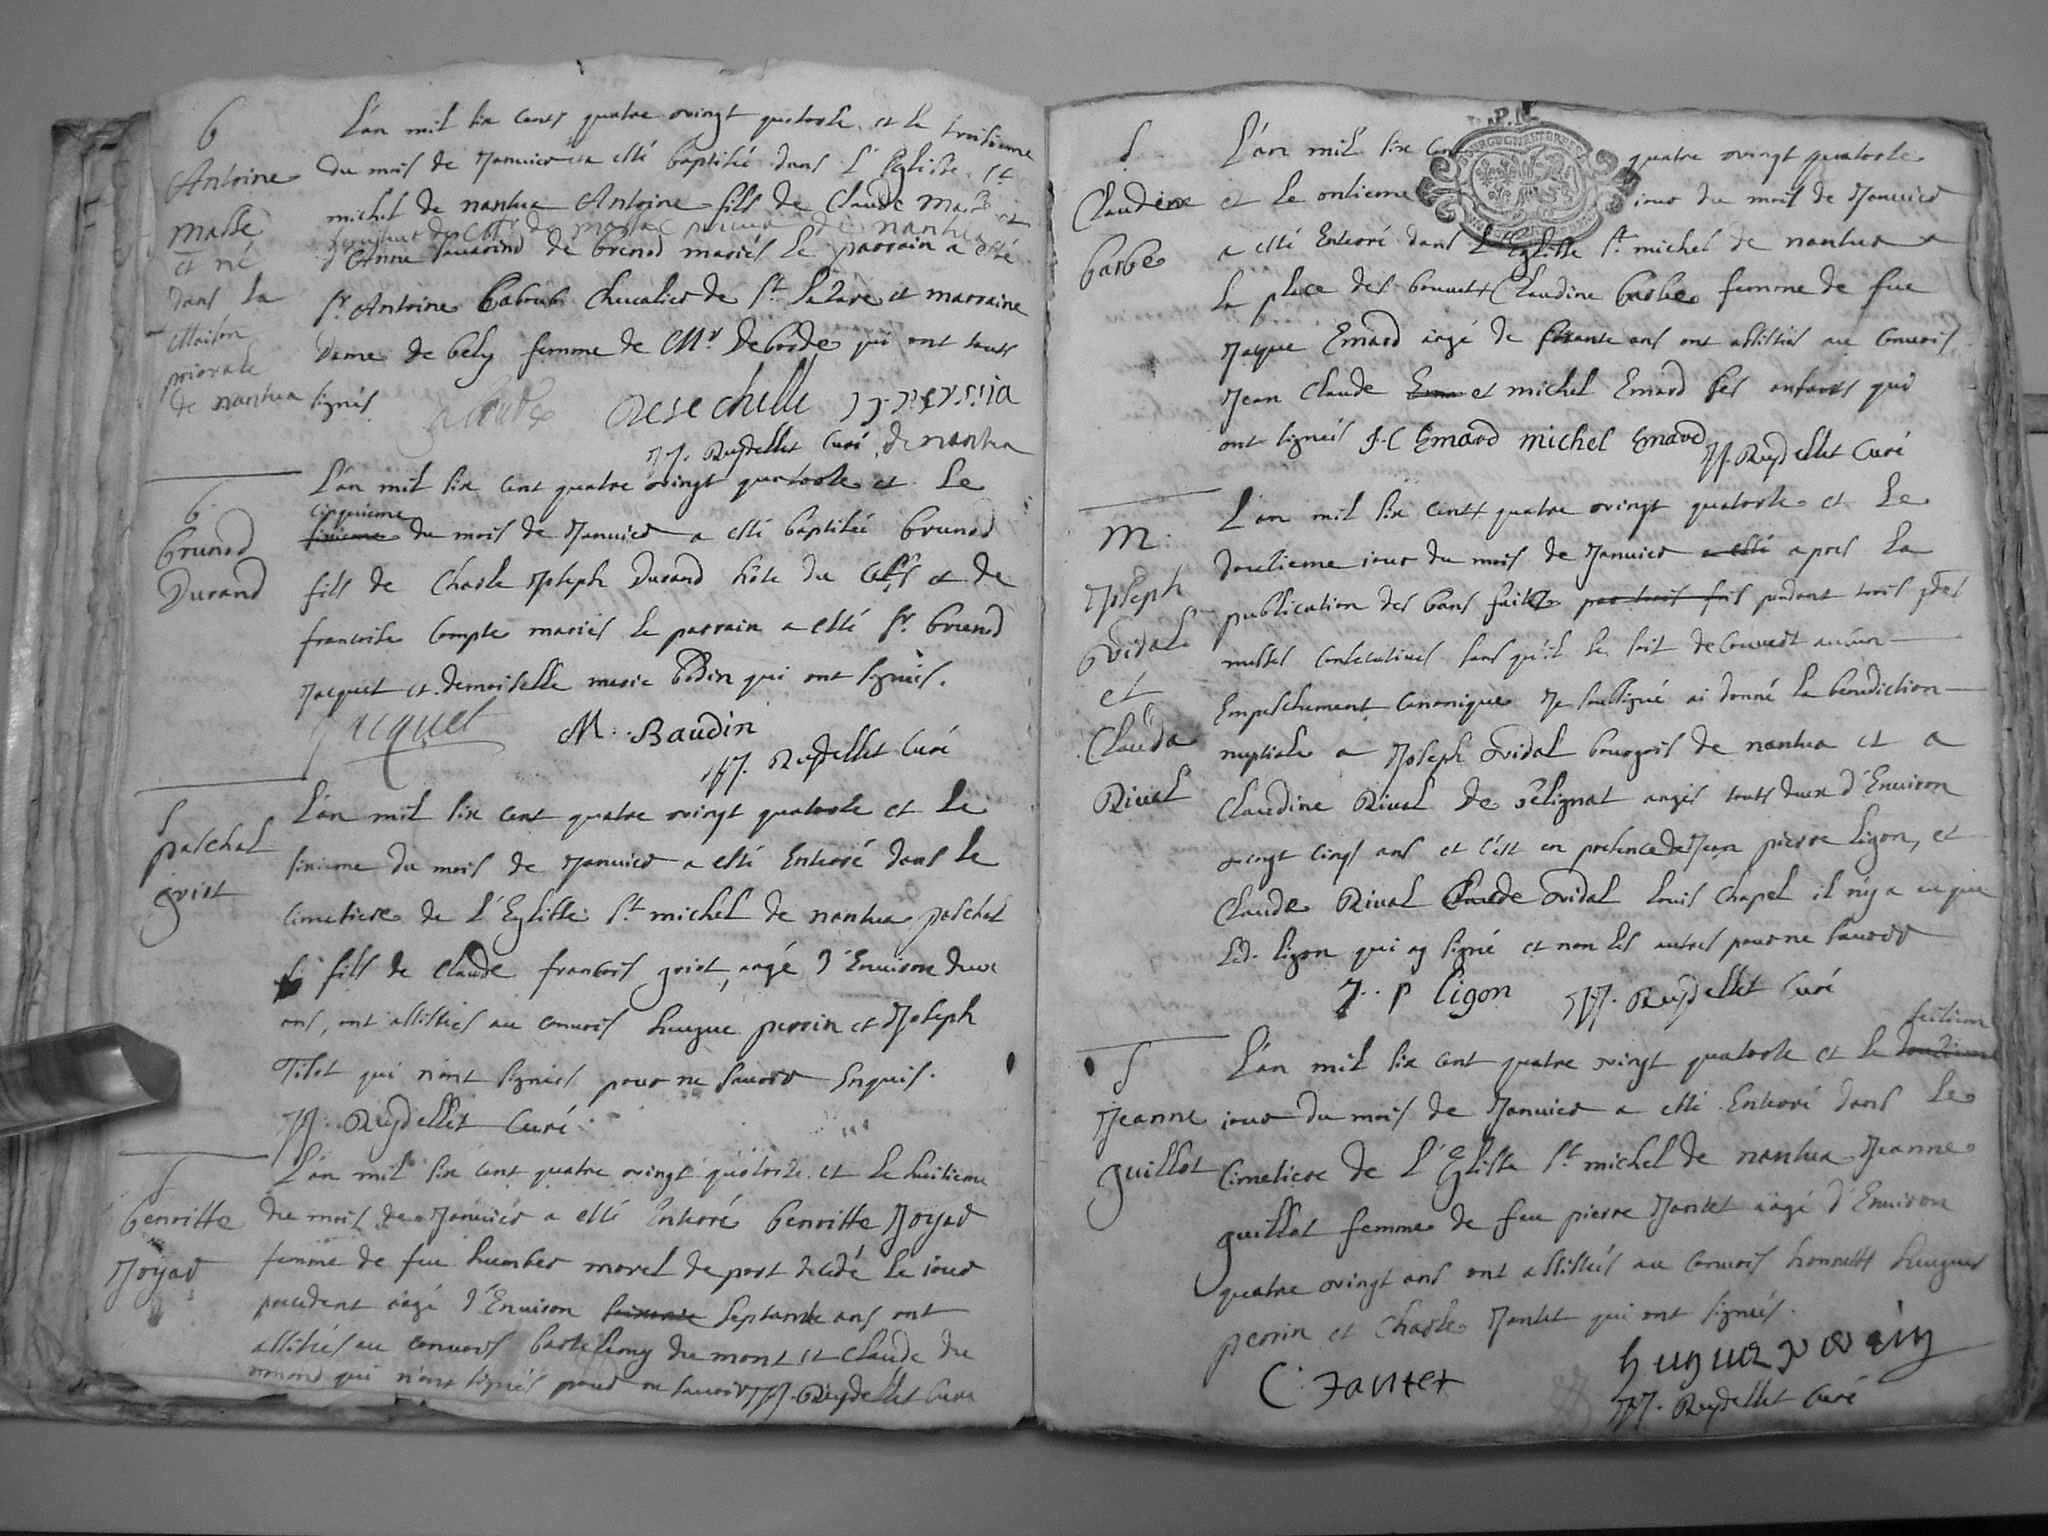 b
Antoine
massé
et né
dans la
maison
priorale
de nantua
L'an mil six cents quatre vingt quatorse et le troisieme
du mois de Janvier a esté baptisé dans l'Eglise St
michel de nantua Antoine fils de Claude massé et
d'Anne de brenod mariés le parrain a esté
Sr Antoine chevalier de St Lazare et marraine
Dame de bely femme de Mr Deborde qui ont touts
signés
Desechelle
JJ. Reydellet Curé de nantua
b
brunod
Durand
L'an mil six cent quatre vingt quatorse et le
cinquieme
sixieme du mois de Janvier a esté baptisé brunod
fils de Charle Joseph Durand hôte du et de
francoise Compte mariés le parrain a esté Sr brunod
Jacquet et demoiselle marie bodin qui ont signés.
Jacquet M. Baudin
JJ. Reydellet Curé
S
paschal
griot
L'an mil six cent quatre vingt quatorse et le
sixieme du mois de Janvier a esté Enteré dans le
Cimetiere de l'Eglisse St michel de nantua paschal
fils de Claude francois griot, aagé d'Environ deux
ans, ont assistés au convois hugue perrin et Joseph
Tilet qui n'ont signés pour ne scavoir Enquis.
JJ. Reydellet Curé
S
benoitte
Joyar
L'an mil six cent quatre vingt quatorse et le huitieme
du mois de Janvier a esté Enteré benoitte Joyar
femme de feu humber morel de port décédé le jour
precedent aagé d'Environ septante ans ont
assistés au convois barthelemy du mont et Claude du
qui n'ont signés pour ne scavoir JJ. Reydellet Curé
S
Claudine
barbe
L'an mil six cent quatre vingt quatorse
et le onsieme jour du mois de Janvier
a esté Enteré dans l'Eglisse St michel de nantua a
la place des Claudine barbe femme de feu
Jaque Emard aagé de ans ont assistés au convois
Jean Claude et michel Emard ses enfants qui
ont signés J.C Emard michel Emard JJ. Reydellet Curé
M.
Joseph
Vidal
et
Clauda
Rival
L'an mil six cents quatre vingt quatorse et le
dousieme jour du mois de Janvier a esté apres la
publication des bans faites par trois fois pendant trois
messes consecutives sans qu'il se soit decouvert aucun
Empeschement Canonique Je soussigné ai donné la benediction
nuptiale a Joseph Vidal bourgois de nantua et a
Claudine Rival de sélignat aagés touts deux d'Environ
vingt cinq ans et c'est en presence de Jean pierre Ligon, et
Claude Rival Claude Vidal Louis Chapel il n'y a eu que
Led. Ligon qui ay signé et non les autres pour ne scavoir
J.. p ligon JJ. Reydellet Curé
S
Jeanne
guillot
L'an mil six cent quatre vingt quatorse et le dousieme
jour du mois de Janvier a esté Enteré dans le
Cimetiere de l'Eglisse St michel de nantua Jeanne
guillot femme de feu pierre Jantet aagé d'Environ
quatre vingt ans ont assistés au convois honnetes hugues
perrin et Charle Jantet qui ont signés.
C. Jantet hugue perrin
JJ. Reydellet Curé